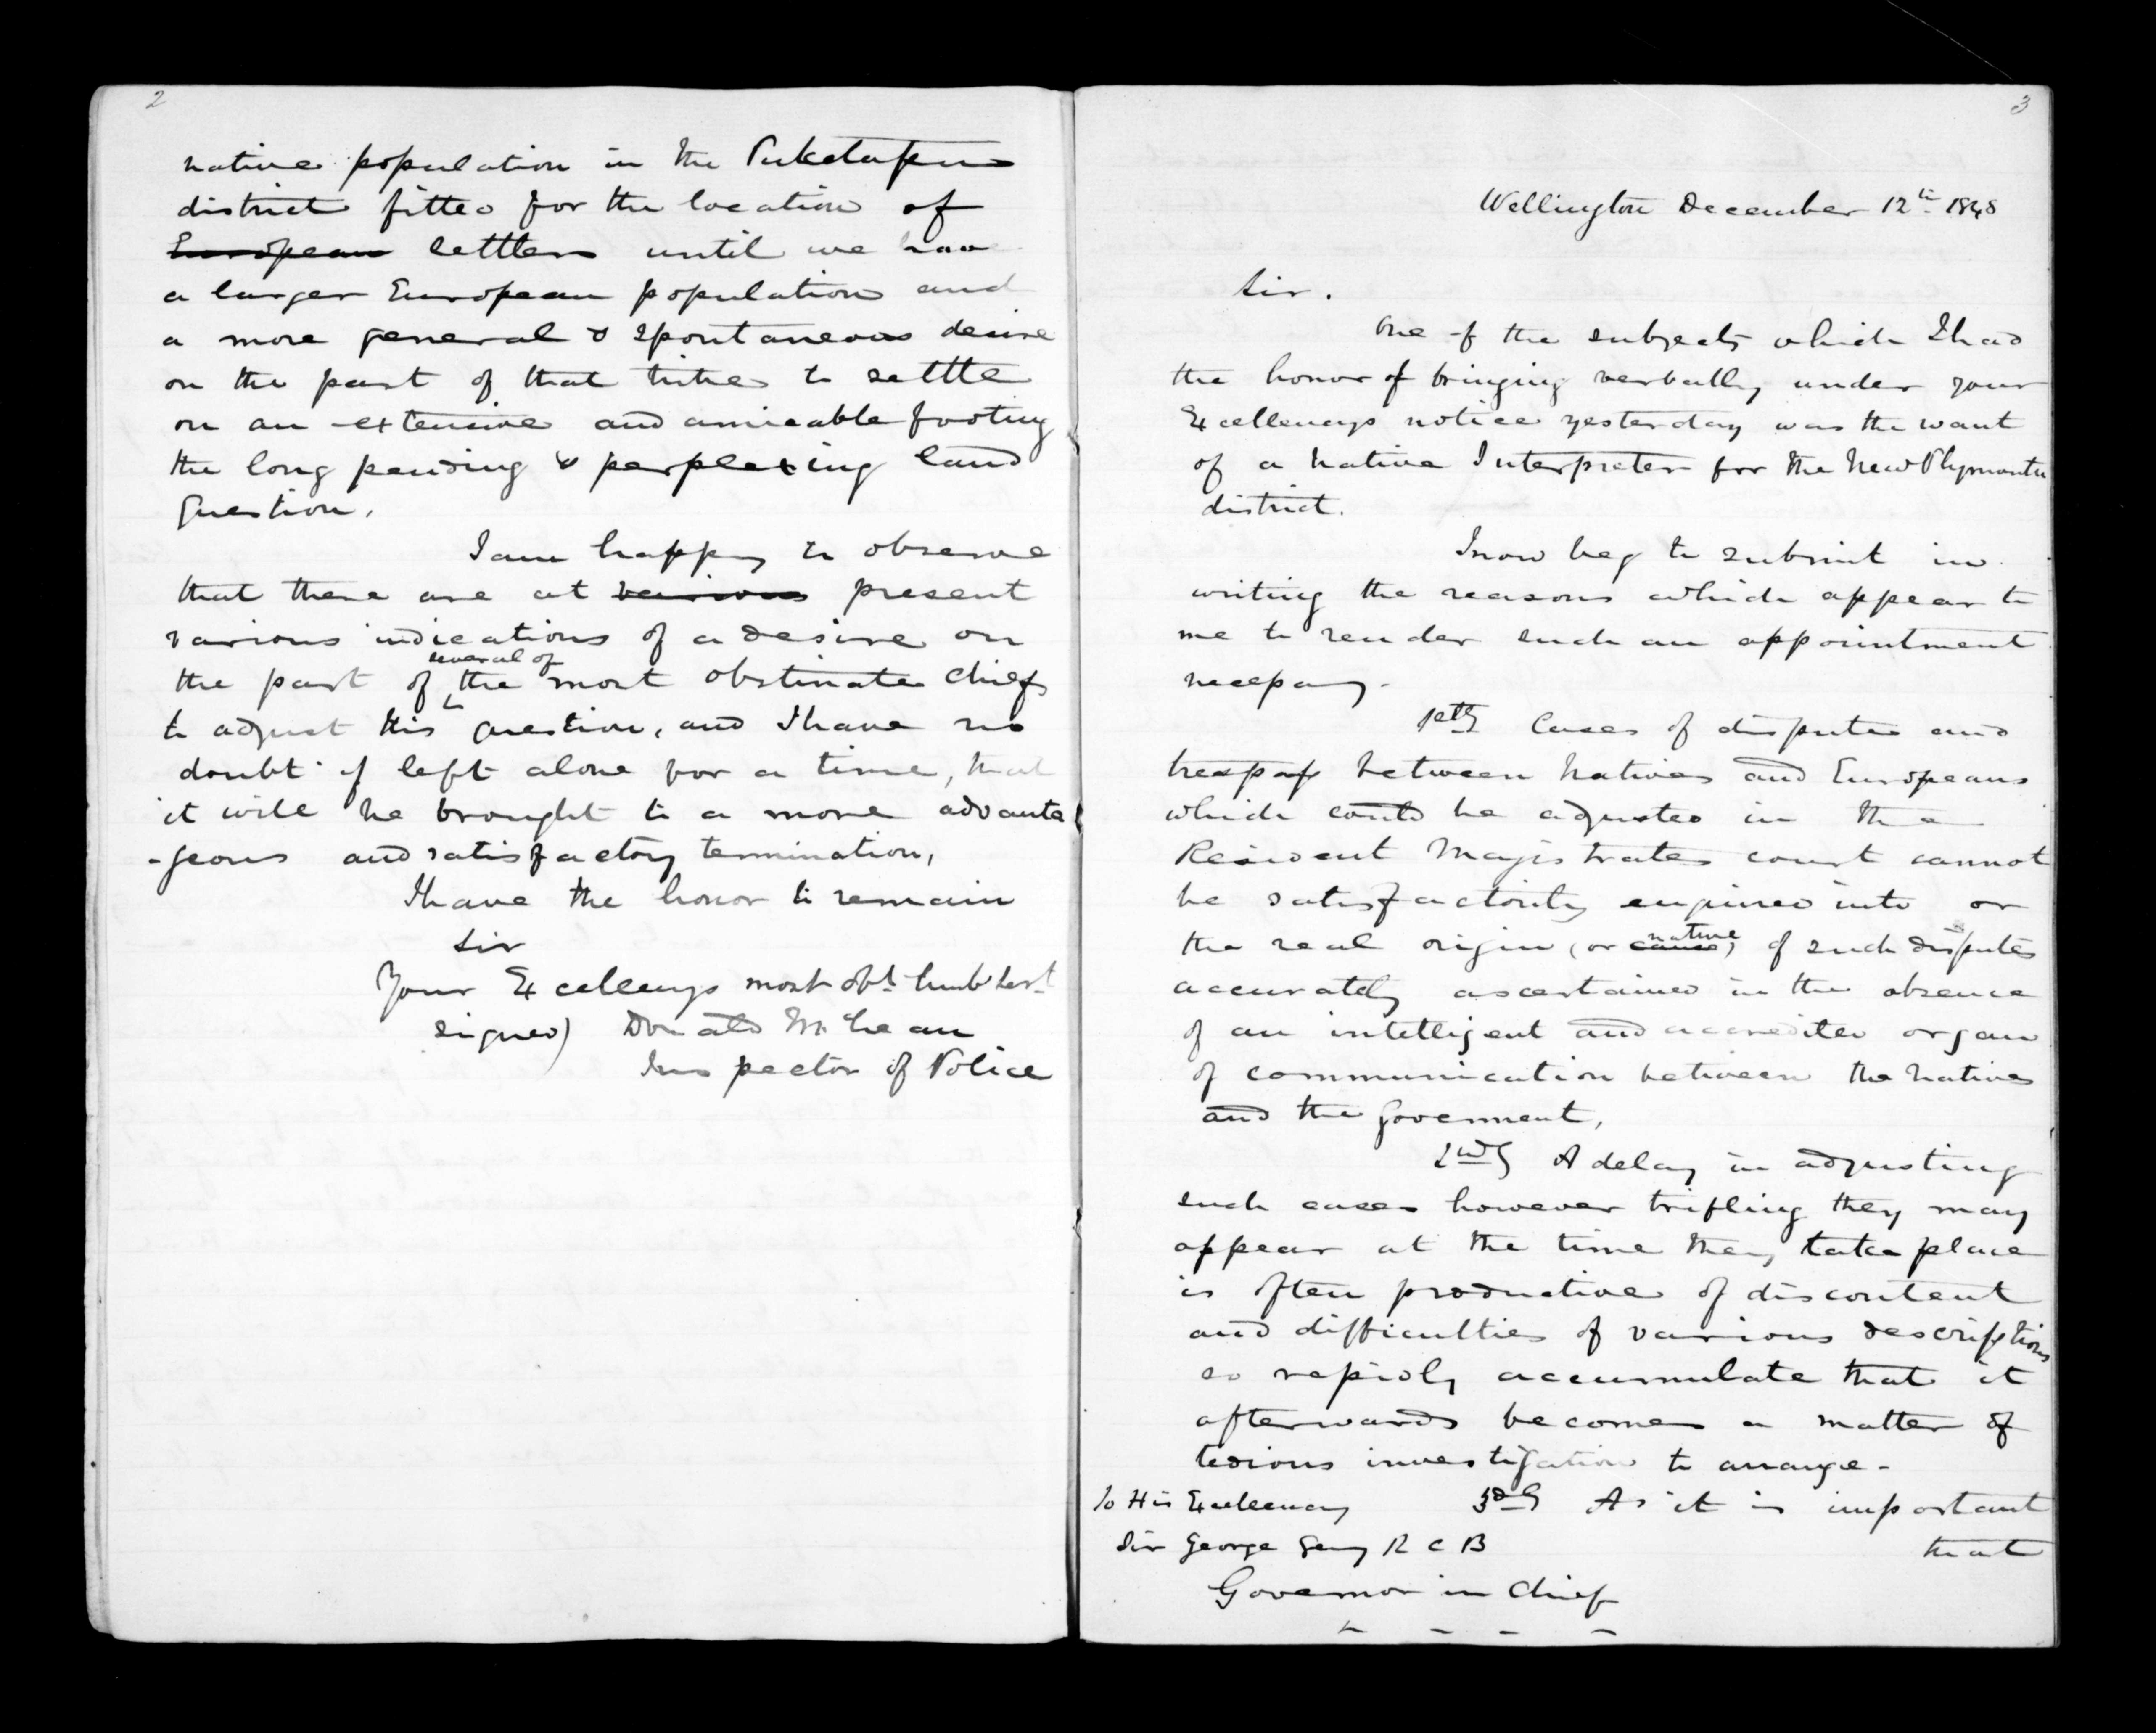 2
native population in the Puketapu
district fitted for the location of
European settlers until we have
a larger European population and
a more general & spontaneous desire
on the part of that tribe to settle
on an extensive and amicable footing
the long pending & perplexing land
question.
I am happy to observe
that there are at various present
various indications of a desire on
several of
the part of the most obstinate chiefs
to adjust this question, and I have no
doubt if left alone for a time, that
it will be brought to a more advanta
-geous and satisfactory termination,
I have the honor to remain
Sir
Your Excellencys most obt. humb Sert.
signed) Donald McLean
Inspector of Police
3
Wellington December 12th 1848
Sir.
One of the subjects which I had
the honor of bringing verbally under your
Excellencys notice yesterday was the want
of a Native Interpreter for the New Plymouth
district.
I now beg to submit in
writing the reasons which appear to
me to render such an appointment
necessary -
1stly Cases of dispute and
trespass between Natives and Europeans
which could be adjusted in the
Resident Magistrates court cannot
be satisfactorily enquired into or
native
the real origin (or cause) of such disputes
accurately ascertained in the absence
of an intelligent and accredited organ
of communication between the Natives
and the Government,
2ndly A delay in adjusting
such cases however trifling they may
appear at the time they take place
is often productive of discontent
and difficulties of various descriptions
so rapidly accumulate that it
afterwards becomes a matter of
tedious investigation to arrange -
3dly As it is important
that
To His Excellency
Sir George Grey K C B
Governor in Chief